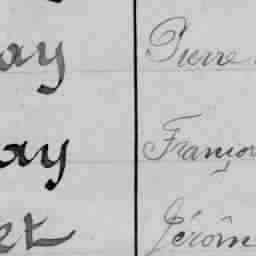 ay Pierre
ay Franço
et Jérôm